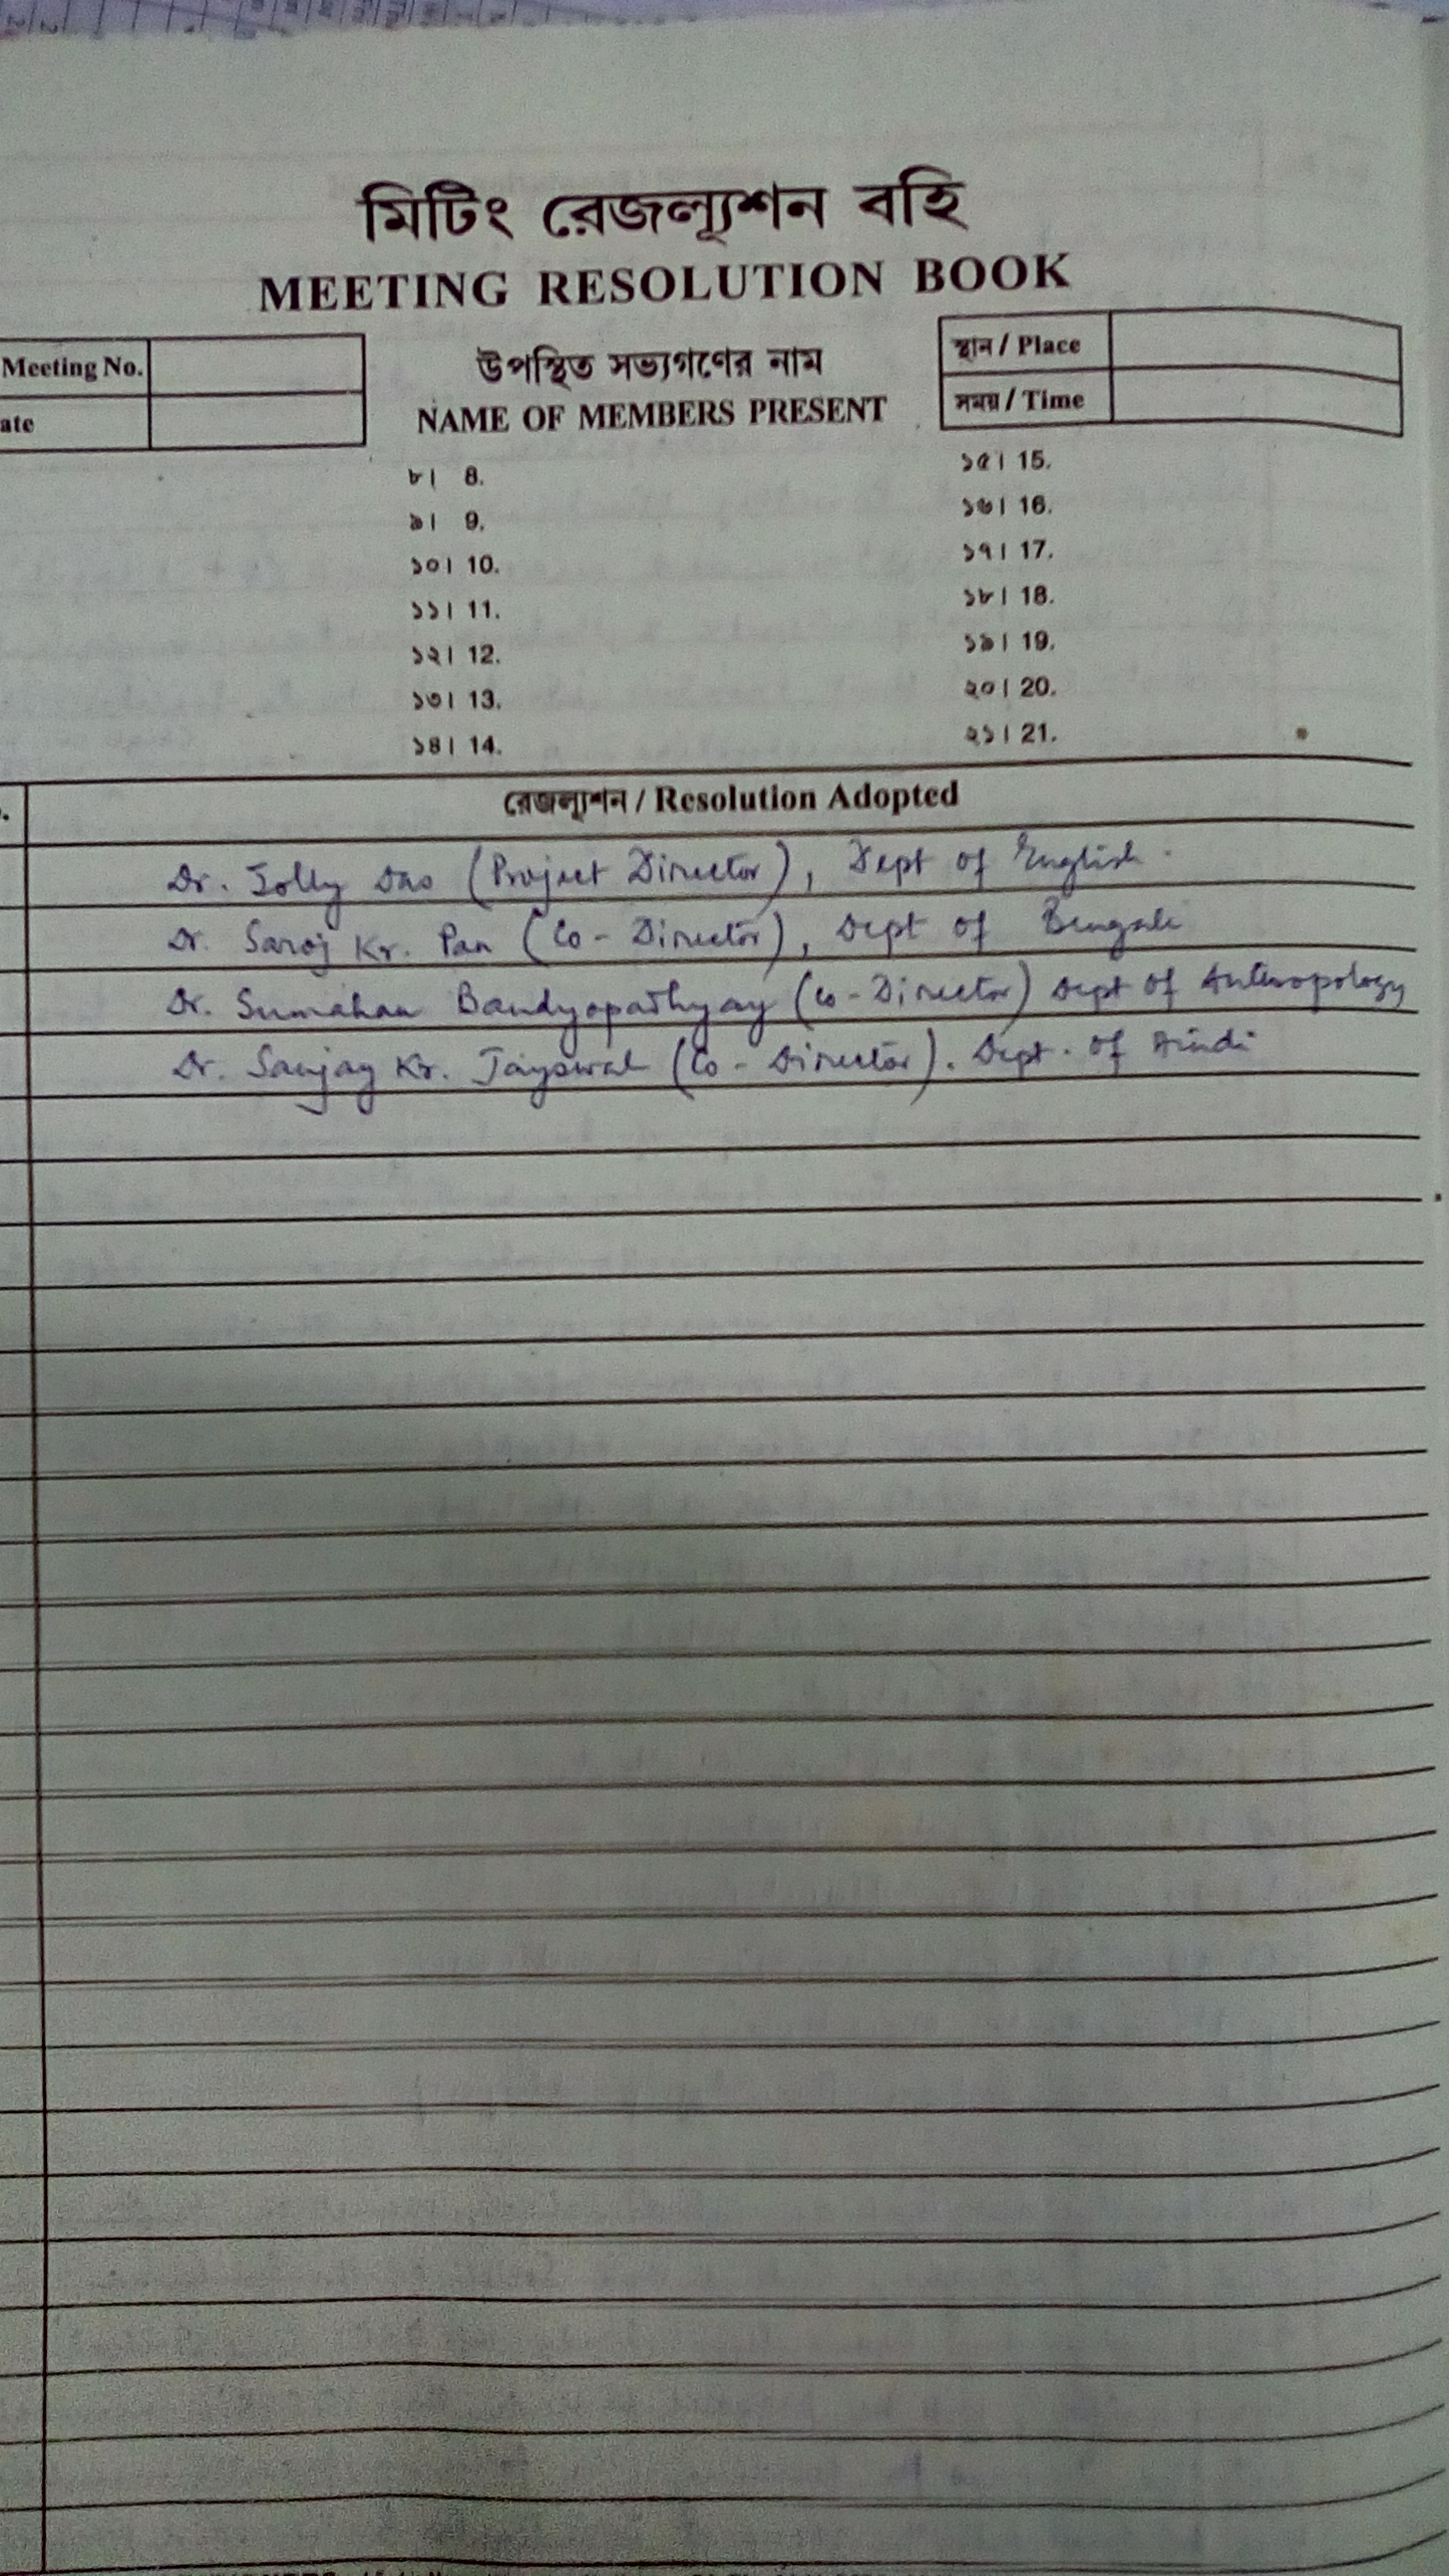 মিটিং রেজল্যূশন বহি
MEETING RESOLUTION BOOK
Meeting No.
ate
উপস্থিত সভ্যগণের নাম
NAME OF MEMBERS PRESENT
স্থান / Place
সময় / Time
৮। 8.
৯। 9.
১০। 10.
১১। 11.
১২। 12.
১৩। 13.
১৪। 14.
১৫। 15.
১৬। 16.
১৭। 17.
১৮। 18.
১৯। 19.
২০। 20.
২১। 21.
রেজল্যূশন / Resolution Adopted
Dr. Jolly Das (Project Director), Dept of English.
Dr. Saroj Kr. Pan (Co-Director), Dept of Bengali
Dr. Sumahan Bandyopathyay (Co-Director) Dept of Anthropology
Dr. Sanjay Kr. Jayswal (Co-Director). Dept. of Hindi